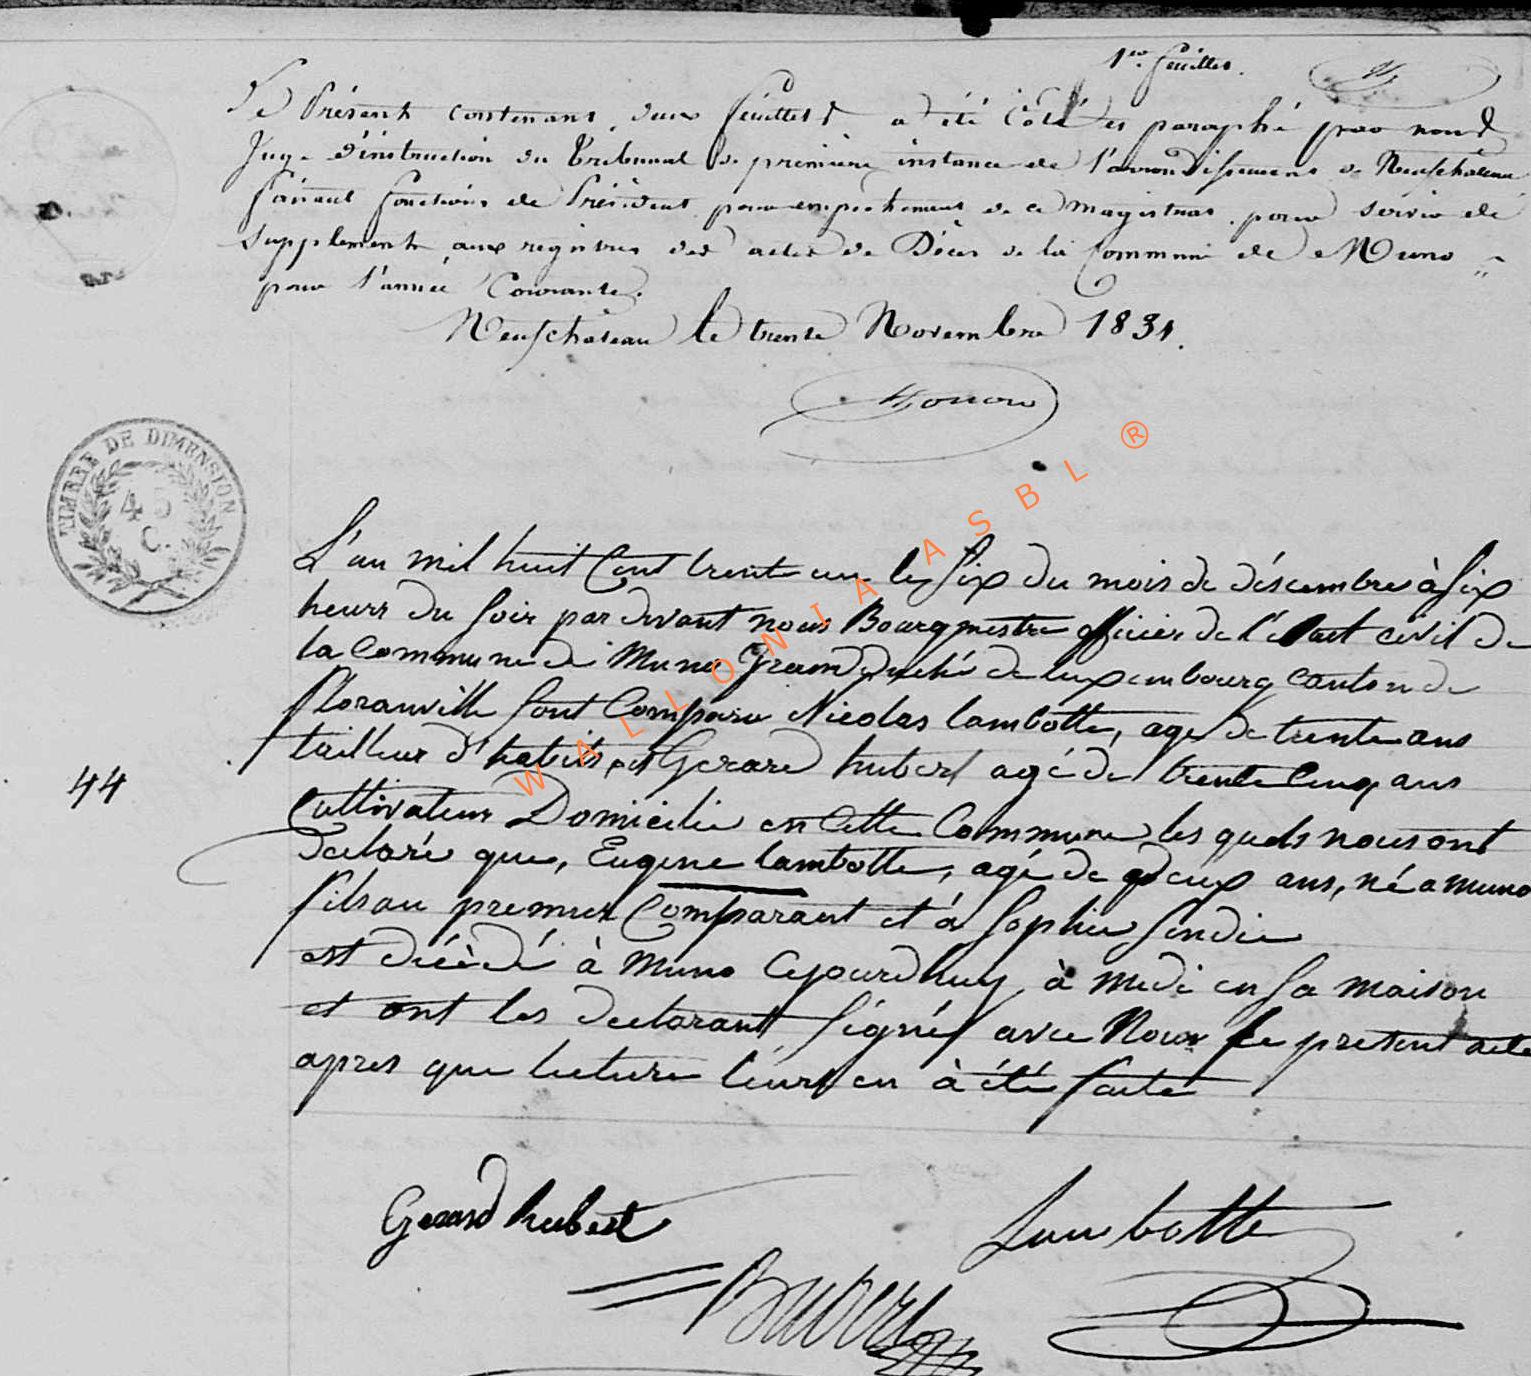 1er feuillet.
Le Présent contenant deux feuillets a été coté et paraphé par nous
Juge d'instruction du Tribunal de première instance de l'arrondissement de Neufchateau
faisant fonctions de Président pour empechement de ce magistrat, pour servir de
Supplément aux registres des actes de Décès de la Commune de Muno
pour l'année Courante.
Neufchateau le trente Novembre 1831.
TIMBRE DE DIMENSION
45
C.
WALLONIA ASBL ®
L'an mil huit Cent trente un le six du mois de déscembre à six
heurs du soir par devant nous Bourgmestre officier de l'état civil de
la Commune de Muno Grand duché de luxembourg canton de
floranville sont Comparu Nicolas lambotte, age de trente ans
tailleur d'habits, et Gerard hubert agé de trente Cinq ans
44
Cultivateur Domicilié en cette Commune les quels nous ont
declaré que, Eugene lambotte, agé de deux ans, né a muno
fils au premier Comparant et à Sophie
est décèdé à Muno Cejourdhuy, à midi en sa maison
et ont les declarant signés avec Nous le present acte
apres que lecture leurs en à été faite
Gerard hubert
Lambotte